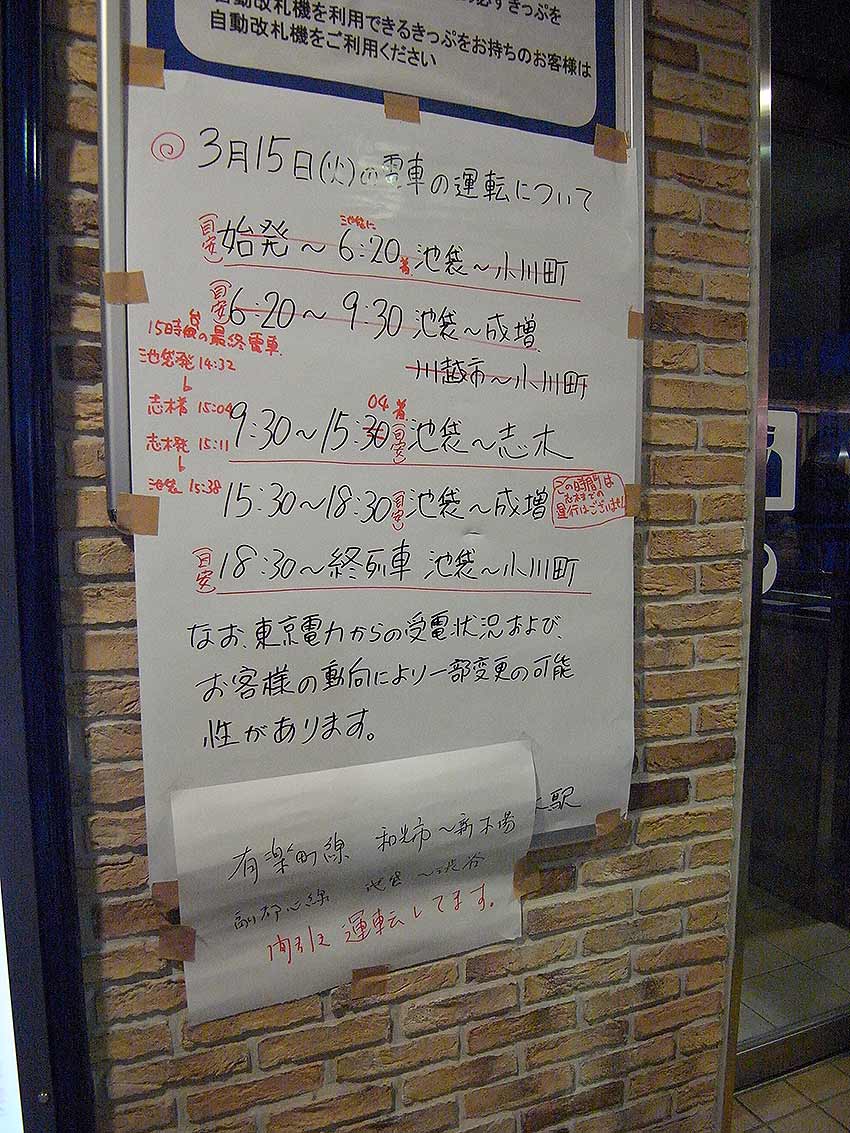 自動改札機を利用できるきっぷをお持ちのお客様は
自動改札機をご利用ください
3月15日(火)の電車の運転について
(目安) 始発～6:20着 池袋～小川町
池袋に
(目安) 6:20～9:30 池袋～成増
川越市～小川町
15時台の最終電車
池袋発 14:32
志木着 15:04
志木発 15:11
池袋 15:38
04着
9:30～15:30(目安)池袋～志木
15:30～18:30(目安)池袋～成増
この時間は
志木までの
運行はございません
(目安) 18:30～終列車 池袋～小川町
なお、東京電力からの受電状況および、
お客様の動向により一部変更の可能
性があります。
駅
有楽町線 和光市～新木場
副都心線 池袋～渋谷
間引き運転してます。